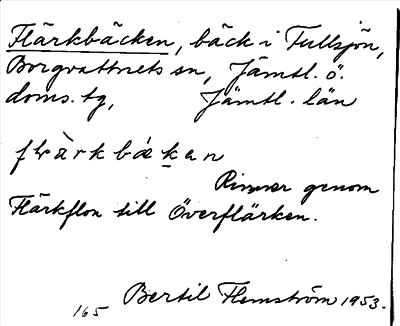 Flärkbäcken, bäck i Fullsjön,
Borgvattnets sn, Jämtl. ö.
doms. tg, Jämtl. län
flärkbäkan
Rinner genom
Flärkflon till Överflärken.
165 Bertil Flemström 1953.